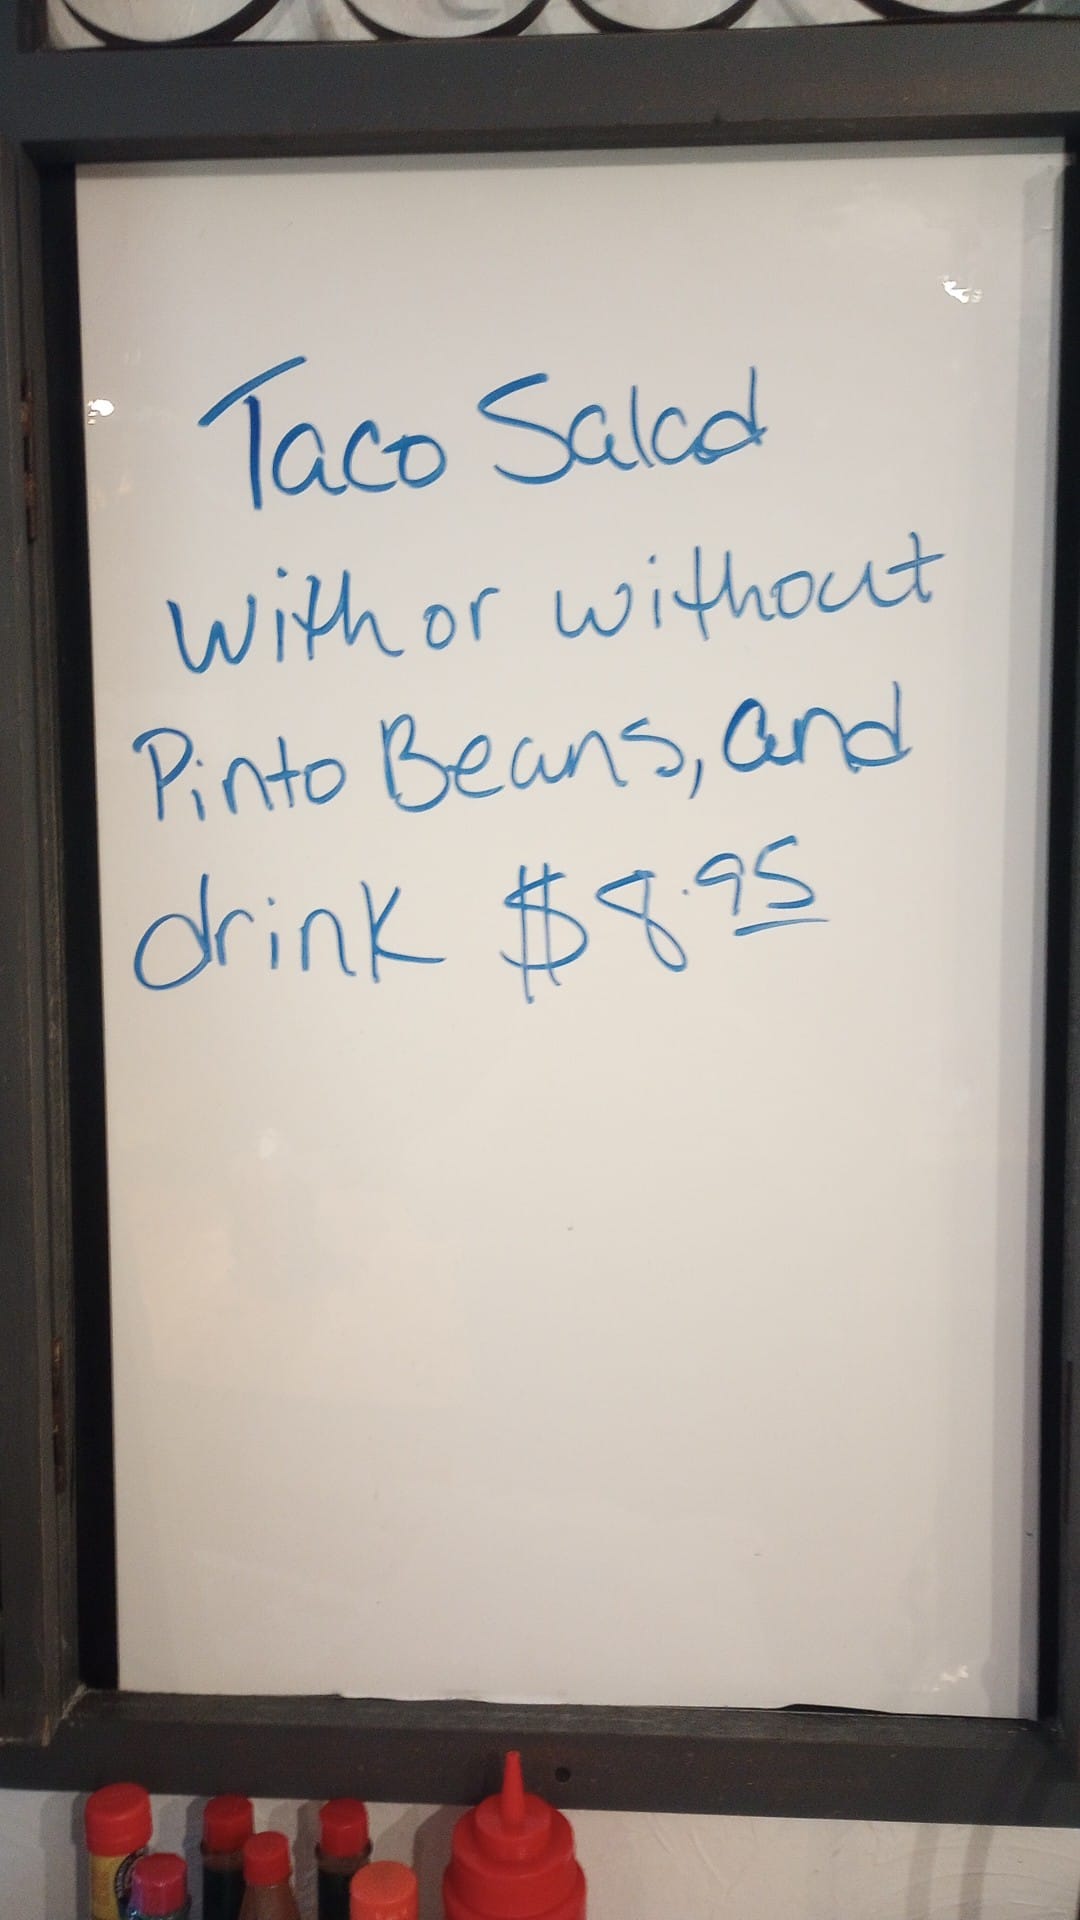 Taco Salad
With or without
Pinto Beans, and
drink $8.95